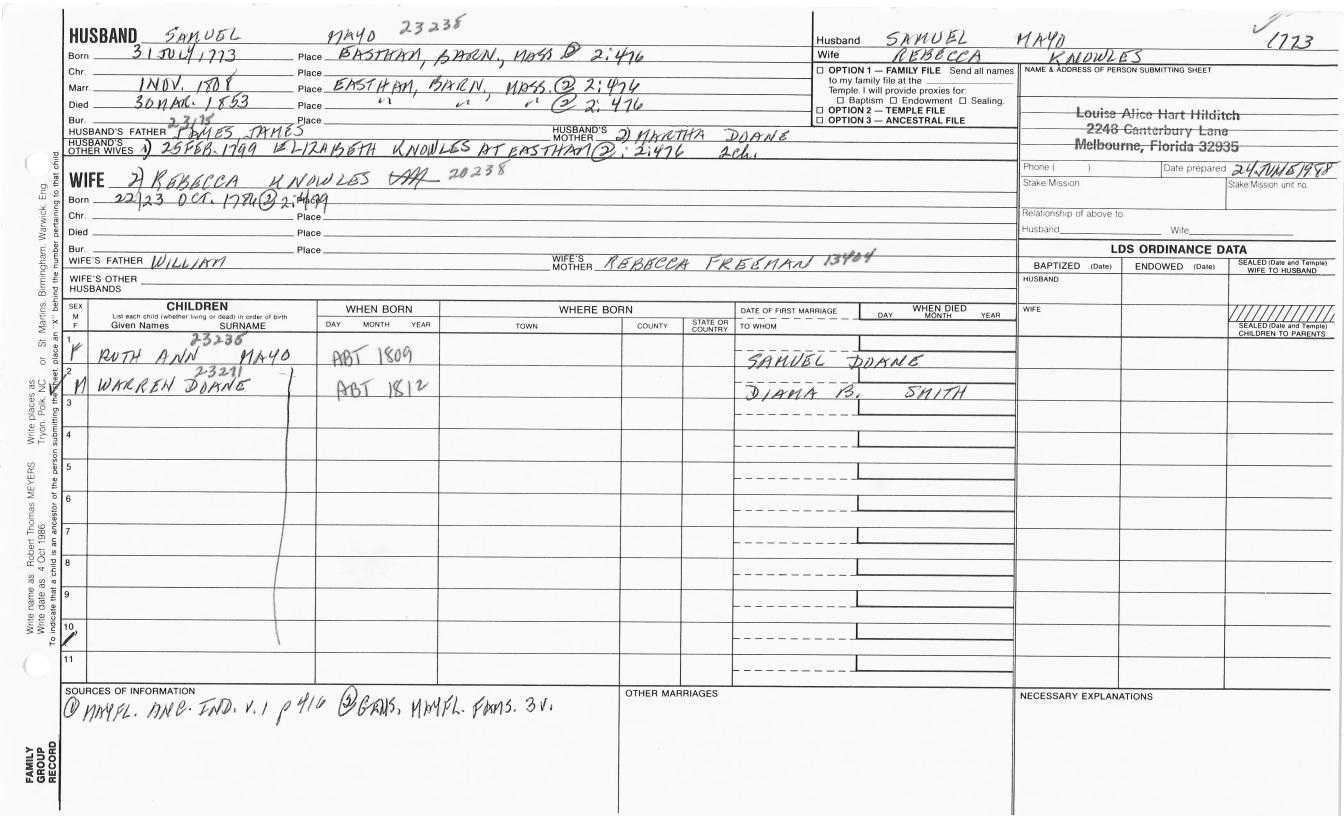 HUSBAND SAMUEL MAYO 23238
Born 31 JULY 1773 Place EASTHAM, BARN., MASS ② 2:476
Chr. Place
Marr. 1 NOV. 1808 Place EASTHAM, BARN, MASS. ② 2:476
Died 30 MAR. 1853 Place " " " ② 2:476
Bur. Place
HUSBAND'S FATHER JAMES HUSBAND'S MOTHER 2) MARTHA DOANE
HUSBAND'S OTHER WIVES 1) 25 FEB. 1799 ELIZABETH KNOWLES AT EASTHAM ②: 2:476 2ch.
Husband SAMUEL MAYO 1773
Wife REBECCA KNOWLES
☐ OPTION 1 — FAMILY FILE Send all names
to my family file at the
Temple. I will provide proxies for:
☐ Baptism ☐ Endowment ☐ Sealing.
☐ OPTION 2 — TEMPLE FILE
☐ OPTION 3 — ANCESTRAL FILE
NAME & ADDRESS OF PERSON SUBMITTING SHEET
Louise Alice Hart Hilditch
2248 Canterbury Lane
Melbourne, Florida 32935
Phone ( ) Date prepared 24 JUNE 1988
Stake Mission Stake Mission unit no.
Relationship of above to:
Husband Wife
WIFE 2) REBECCA KNOWLES 20238
Born 22/23 OCT. 1786 ② 2: Place
Chr. Place
Died Place
Bur. Place
WIFE'S FATHER WILLIAM WIFE'S MOTHER REBECCA FREEMAN 13404
WIFE'S OTHER HUSBANDS
LDS ORDINANCE DATA
BAPTIZED (Date) ENDOWED (Date) SEALED (Date and Temple) WIFE TO HUSBAND
HUSBAND
WIFE
SEALED (Date and Temple) CHILDREN TO PARENTS
SEX M F
CHILDREN
List each child (whether living or dead) in order of birth
Given Names SURNAME
WHEN BORN
DAY MONTH YEAR
WHERE BORN
TOWN COUNTY STATE OR COUNTRY
DATE OF FIRST MARRIAGE
TO WHOM
WHEN DIED
DAY MONTH YEAR
23238
1 F RUTH ANN MAYO ABT 1809 SAMUEL DOANE
23271
2 M WARREN DOANE ABT 1812 DIANA B. SMITH
3
4
5
6
7
8
9
10
11
SOURCES OF INFORMATION
① MAYFL. ANC. IND. V.1 p 416 ② GENS. MAYFL. FAMS. 3 V.
OTHER MARRIAGES
NECESSARY EXPLANATIONS
FAMILY GROUP RECORD
Write name as: Robert Thomas MEYERS Write places as: Tryon, Polk, NC or St. Martins, Birmingham, Warwick, Eng.
Write date as: 4 Oct 1986
To indicate that a child is an ancestor of the person submitting the sheet, place an "X" behind the number pertaining to that child.